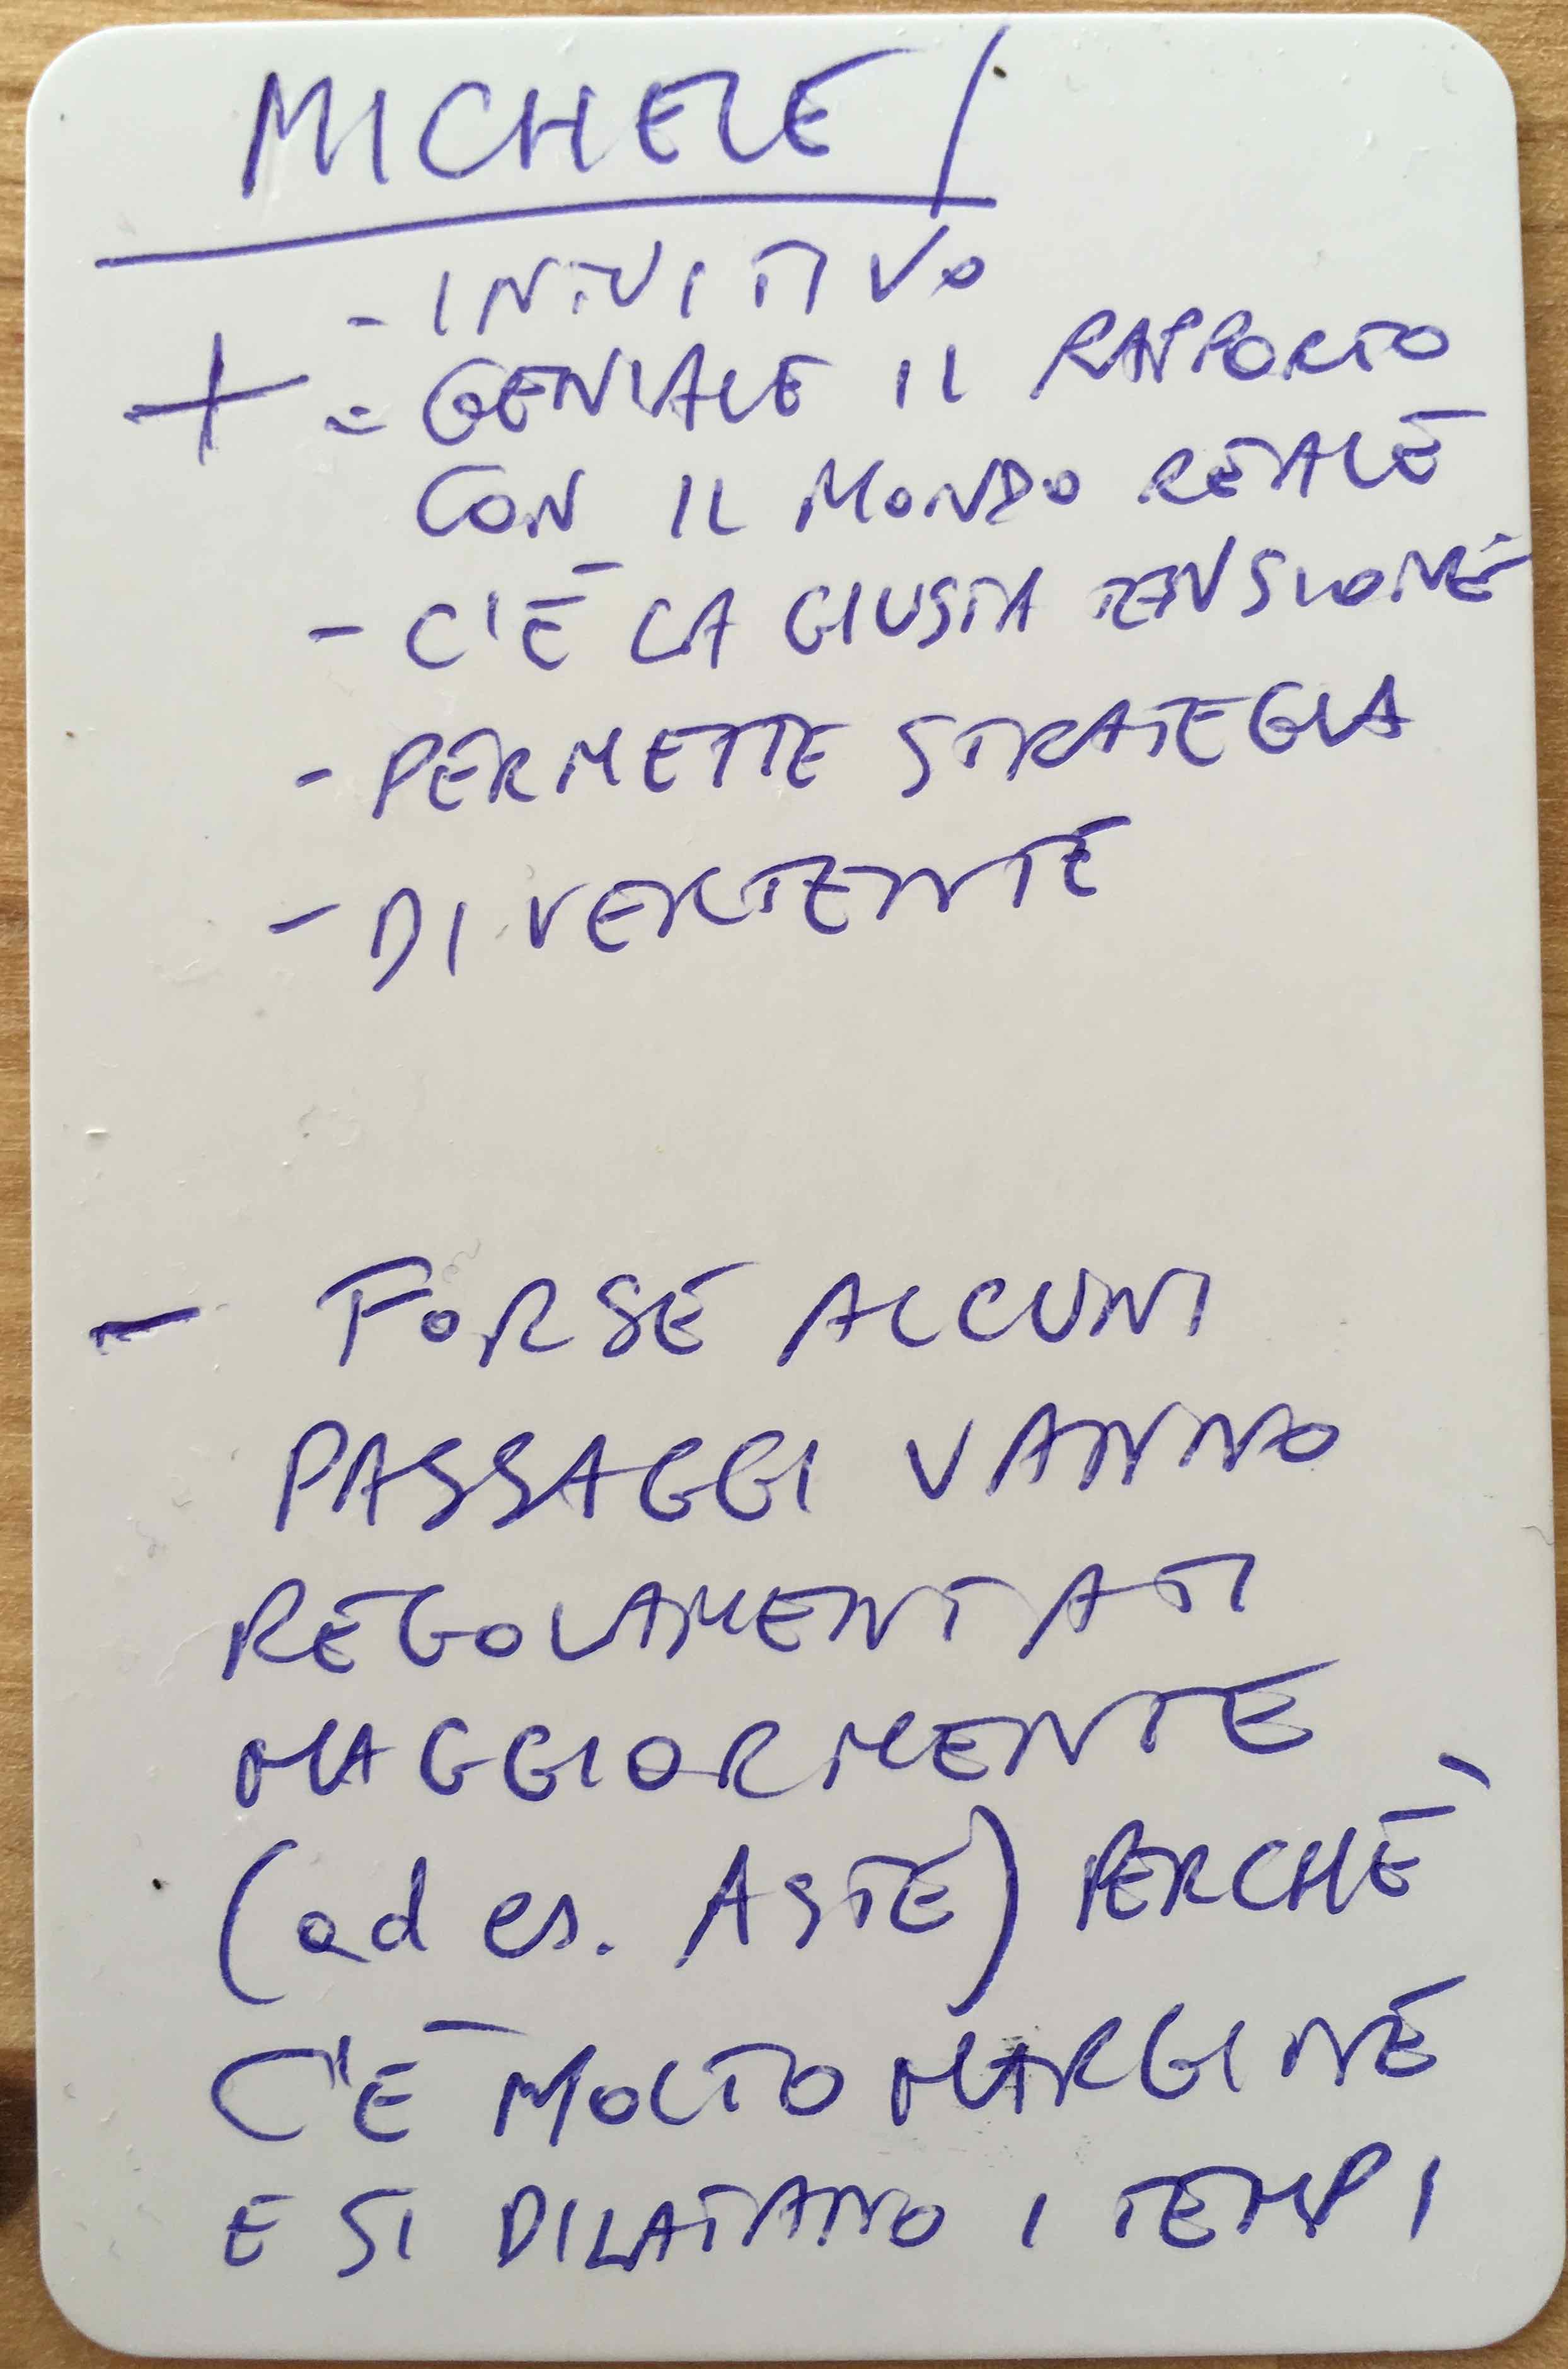 MICHELE/
+ - INTUITIVO
- GENIALE IL RAPPORTO
CON IL MONDO REALE
- C'È LA GIUSTA TENSIONE
- PERMETTE STRATEGIA
- DIVERTENTE
- FORSE ALCUNI
PASSAGGI VANNO
REGOLAMENTATI
MAGGIORMENTE
(ad es. ASTE) PERCHÈ
C'È MOLTO MARGINE
E SI DILATANO I TEMPI